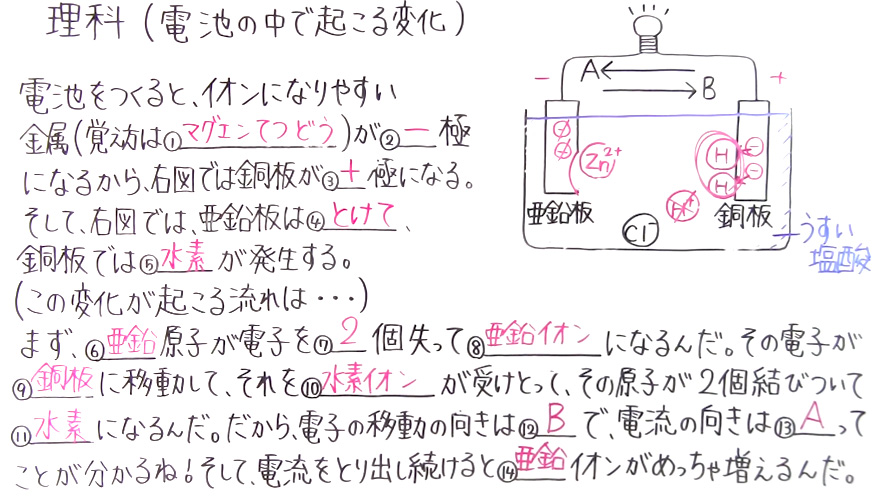 理科(電池の中で起こる変化)
電池をつくると、イオンになりやすい
金属(覚え方は①マグエンてつどう)が②ー極
になるから、右図では銅板が③+極になる。
そして、右図では、亜鉛板は④とけて、
銅板では⑤水素が発生する。
(この変化が起こる流れは・・・)
まず、⑥亜鉛原子が電子を⑦2個失って⑧亜鉛イオンになるんだ。その電子が
⑨銅板に移動して、それを⑩水素イオンが受けとって、その原子が2個結びついて
⑪水素になるんだ。だから、電子の移動の向きは⑫Bで、電流の向きは⑬Aって
ことが分かるね!そして、電流をとり出し続けると⑭亜鉛イオンがめっちゃ増えるんだ。
− A B +
Zn²⁺ H − H −
亜鉛板 Cl⁻ 銅板
うすい
塩酸